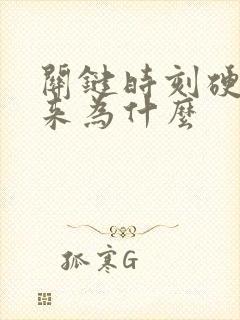 關鍵時刻硬
来為什麼
孤寒G